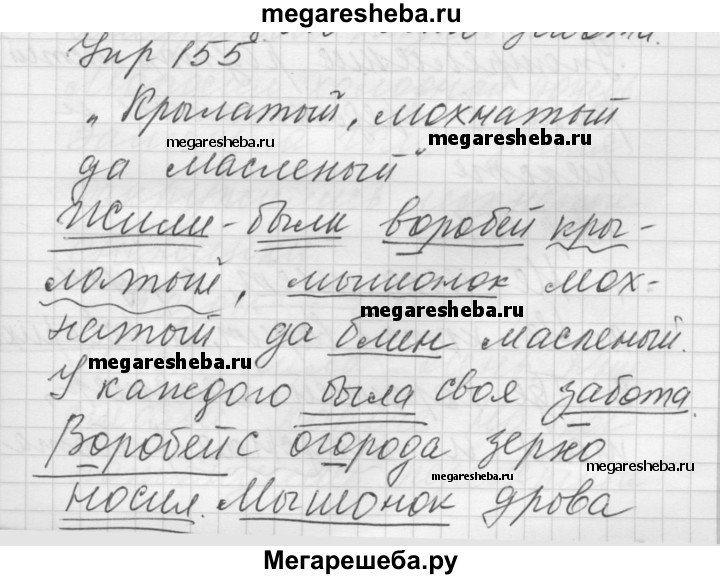 megaresheba.ru
Упр 155
„Крылатый, мохнатый
megaresheba.ru megaresheba.ru
да масленый"
Жили-были воробей кры-
латый, мышонок мох-
megaresheba.ru
натый да блин масленый.
megaresheba.ru
У каждого была своя забота.
Воробей с огорода зерно
megaresheba.ru megaresheba.ru
носил. Мышонок дрова
Мегарешеба.ру